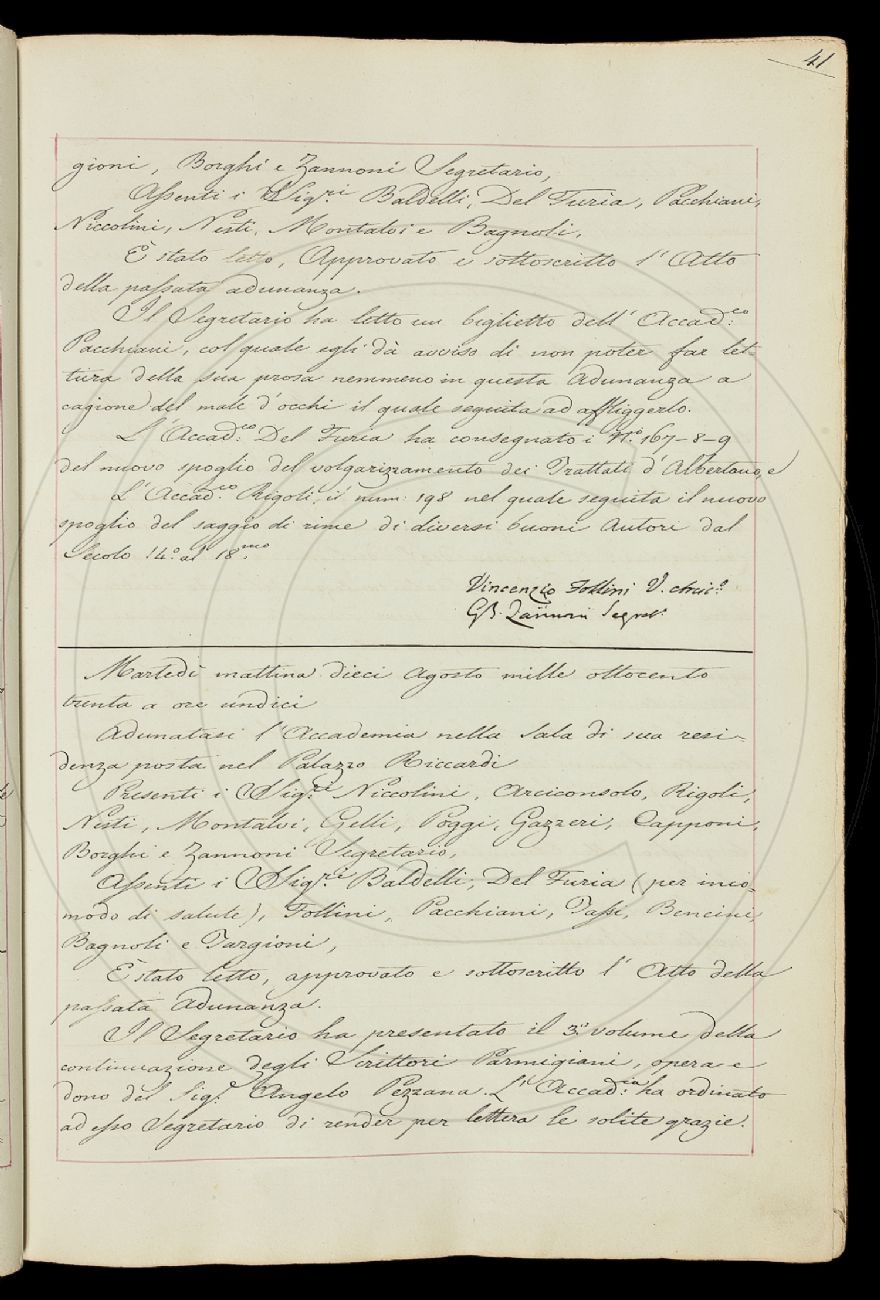 41
gioni, Borghi e Zannoni Segretario,
Assenti i Sig.ri Baldelli, Del Furia, Pacchiani,
Niccolini, Nesti, Montalvi e Bagnoli.
È stato letto, Approvato e sottoscritto l'Atto
della passata adunanza.
Il Segretario ha letto un biglietto dell'Accad.co
Pacchiani, col quale egli dà avviso di non poter far let-
tura della sua prosa nemmeno in questa Adunanza a
cagione del male d'occhi il quale seguita ad affliggerlo.
L'Accad.co Del Furia ha consegnato i N.o 167-8-9
del nuovo spoglio del volgarizzamento dei Trattati d'Albertano, e
L'Accad.co Rigoli, il num: 198 nel quale seguita il nuovo
spoglio del saggio di rime di diversi buoni Autori dal
Secolo 14.o al 18.mo
Vincenzio Follini V.
G.B. Zannoni Segret.
Martedì mattina dieci Agosto mille ottocento
trenta a ore undici
Adunatasi l'Accademia nella Sala di sua resi-
denza posta nel Palazzo Riccardi
Presenti i Sig.ri Niccolini, Arciconsolo, Rigoli,
Nesti, Montalvi, Gelli, Poggi, Gazzeri, Capponi,
Borghi e Zannoni Segretario,
Assenti i Sig.ri Baldelli, Del Furia (per inco-
modo di salute), Follini, Pacchiani, Tassi, Bencini,
Bagnoli e Targioni,
È stato letto, approvato e sottoscritto l'Atto della
passata Adunanza.
Il Segretario ha presentato il 3.o volume della
continuazione degli Scrittori Parmigiani, opera e
dono del Sig.e Angelo Pezzana. L'Accad.ia ha ordinato
ad esso Segretario di render per lettera le solite grazie.